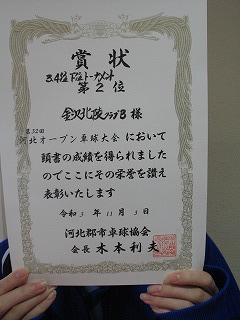 賞状
3.4位下位トーナメント
第2位
金沢北陵クラブB 様
第32回
河北オープン卓球大会 において
頭書の成績を得られました
のでここにその栄誉を讃え
表彰いたします
令和3年11月3日
河北郡市卓球協会
会長 木本利夫